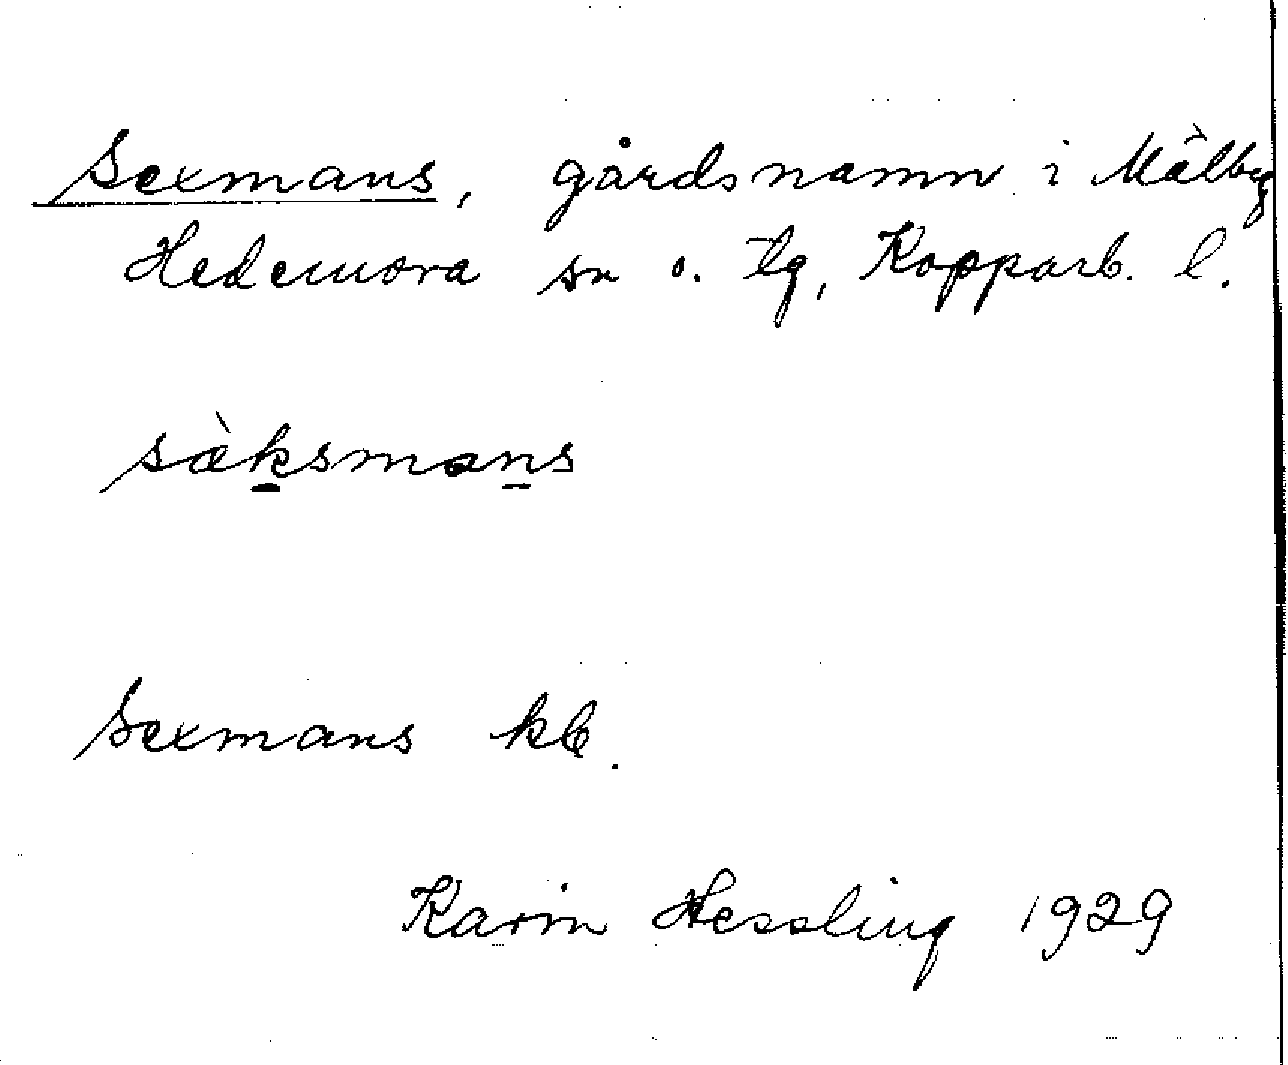 Sexmans, gårdsnamn i Mälby
Hedemora sn o. tg, Kopparb. l.
sàksmans
Sexmans kb.
Karin Hessling 1929